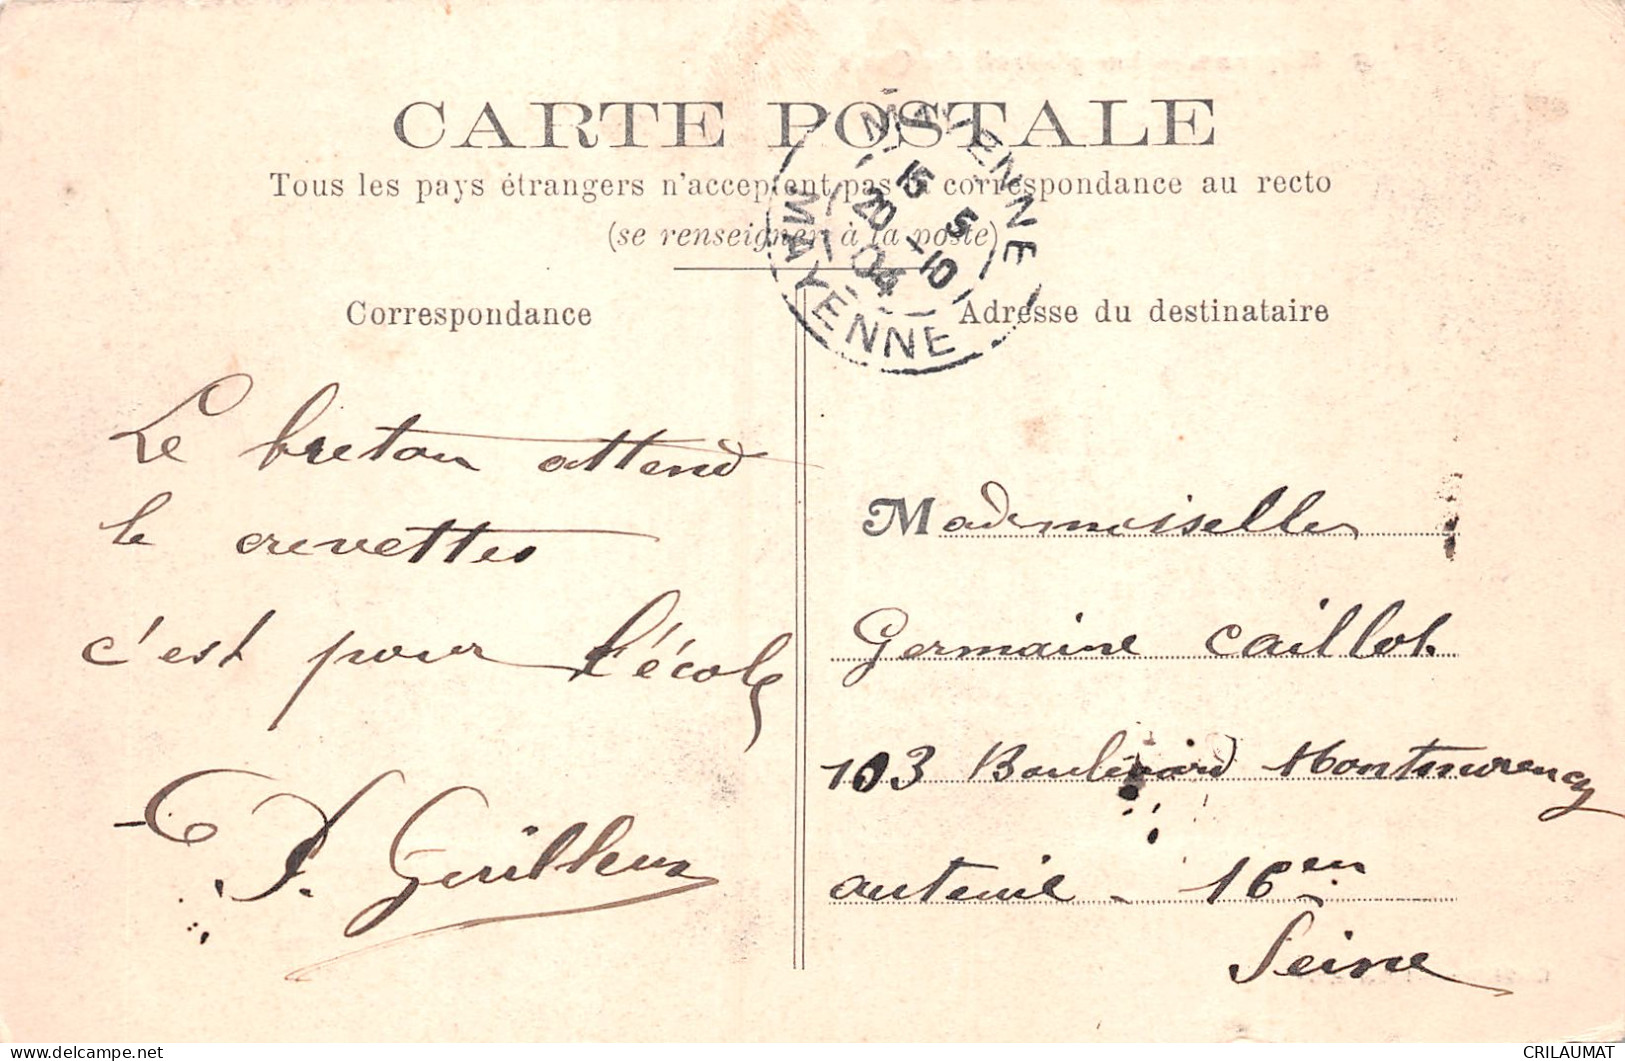 CARTE POSTALE
Tous les pays étrangers n'acceptent pas la correspondance au recto
(se renseigner à la poste)
MAYENNE
15 5
20 -10
04
MAYENNE
Correspondance
Le breton attend
le crevettes
c'est pour l'école
Guilleux
Adresse du destinataire
Mademoiselle
Germaine Caillot.
103 Boulevard Montmorency
auteuil - 16em
Seine
delcampe.net
CRILAUMAT